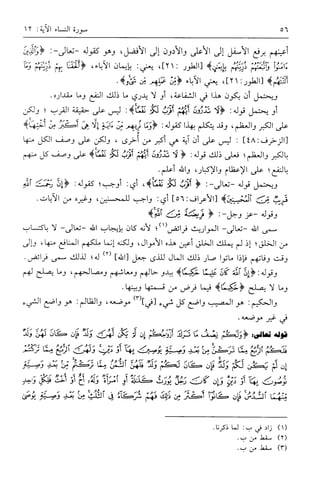 ٥٦ سورة النساء الآية: ١٢
أعينهم برفع الأسفل إلى الأعلى والأدون إلى الأفضل، وهو كقوله -تعالى-: ﴿وَالَّذِينَ
آمَنُوا وَاتَّبَعَتْهُمْ ذُرِّيَّتُهُمْ بِإِيمَانٍ﴾ [الطور: ٢١]، يعني: بإيمان الآباء، ﴿أَلْحَقْنَا بِهِمْ ذُرِّيَّتَهُمْ وَمَا
أَلَتْنَاهُمْ﴾ [الطور: ٢١]، يعني الآباء ﴿مِنْ عَمَلِهِمْ مِنْ شَيْءٍ﴾.
ويحتمل أن يكون هذا في الشفاعة، أو لا يدري ما ذلك النفع وما مقداره.
أو يحتمل قوله: ﴿لَا تَدْرُونَ أَيُّهُمْ أَقْرَبُ لَكُمْ نَفْعًا﴾: ليس على حقيقة القرب؛ ولكن
على الكبر والعظم، وقد يتكلم بهذا كقوله: ﴿وَمَا نُرِيهِمْ مِنْ آيَةٍ إِلَّا هِيَ أَكْبَرُ مِنْ أُخْتِهَا﴾
[الزخرف: ٤٨]: ليس على أن آية هي أكبر من أخرى، ولكن على وصف الكل منها
بالكبر والعظم؛ فعلى ذلك قوله: ﴿لَا تَدْرُونَ أَيُّهُمْ أَقْرَبُ لَكُمْ نَفْعًا﴾ على وصف كل منهم
بالنفع؛ على الإعظام والإكبار، والله أعلم.
ويحتمل قوله -تعالى-: ﴿أَقْرَبُ لَكُمْ نَفْعًا﴾، أي: أوجب؛ كقوله: ﴿إِنَّ رَحْمَتَ اللَّهِ
قَرِيبٌ مِنَ الْمُحْسِنِينَ﴾ [الأعراف: ٥٦] أي: واجب للمحسنين، وغيره من الآيات.
وقوله -عز وجل-: ﴿فَرِيضَةً مِنَ اللَّهِ﴾
سمى الله -تعالى- المواريث فرائض(١)؛ لأنه كان بإيجاب الله -تعالى- لا باكتساب
من الخلق؛ إذ لم يملك الخلق أعين هذه الأموال، ولكنه إنما ملكهم المنافع منها، وإلى
وقت وفاتهم فإذا ماتوا صار ذلك المال للذي جعل [الله](٢) له؛ لذلك سمى فرائض.
وقوله: ﴿إِنَّ اللَّهَ كَانَ عَلِيمًا حَكِيمًا﴾ يبدو حالهم ومعاشهم ومصالحهم، وما يصلح لهم
وما لا يصلح ﴿حَكِيمًا﴾ فيما فرض من قسمتها وبينها.
والحكيم: هو المصيب واضع كل شيء [في](٣) موضعه، والظالم: هو واضع الشيء
في غير موضعه.
قوله تعالى: ﴿وَلَكُمْ نِصْفُ مَا تَرَكَ أَزْوَاجُكُمْ إِنْ لَمْ يَكُنْ لَهُنَّ وَلَدٌ فَإِنْ كَانَ لَهُنَّ وَلَدٌ
فَلَكُمُ الرُّبُعُ مِمَّا تَرَكْنَ مِنْ بَعْدِ وَصِيَّةٍ يُوصِينَ بِهَا أَوْ دَيْنٍ وَلَهُنَّ الرُّبُعُ مِمَّا تَرَكْتُمْ
إِنْ لَمْ يَكُنْ لَكُمْ وَلَدٌ فَإِنْ كَانَ لَكُمْ وَلَدٌ فَلَهُنَّ الثُّمُنُ مِمَّا تَرَكْتُمْ مِنْ بَعْدِ وَصِيَّةٍ
تُوصُونَ بِهَا أَوْ دَيْنٍ وَإِنْ كَانَ رَجُلٌ يُورَثُ كَلَالَةً أَوِ امْرَأَةٌ وَلَهُ أَخٌ أَوْ أُخْتٌ فَلِكُلِّ وَاحِدٍ
مِنْهُمَا السُّدُسُ فَإِنْ كَانُوا أَكْثَرَ مِنْ ذَلِكَ فَهُمْ شُرَكَاءُ فِي الثُّلُثِ مِنْ بَعْدِ وَصِيَّةٍ يُوصَى
(١) زاد في ب: لما ذكرنا.
(٢) سقط من ب.
(٣) سقط من ب.